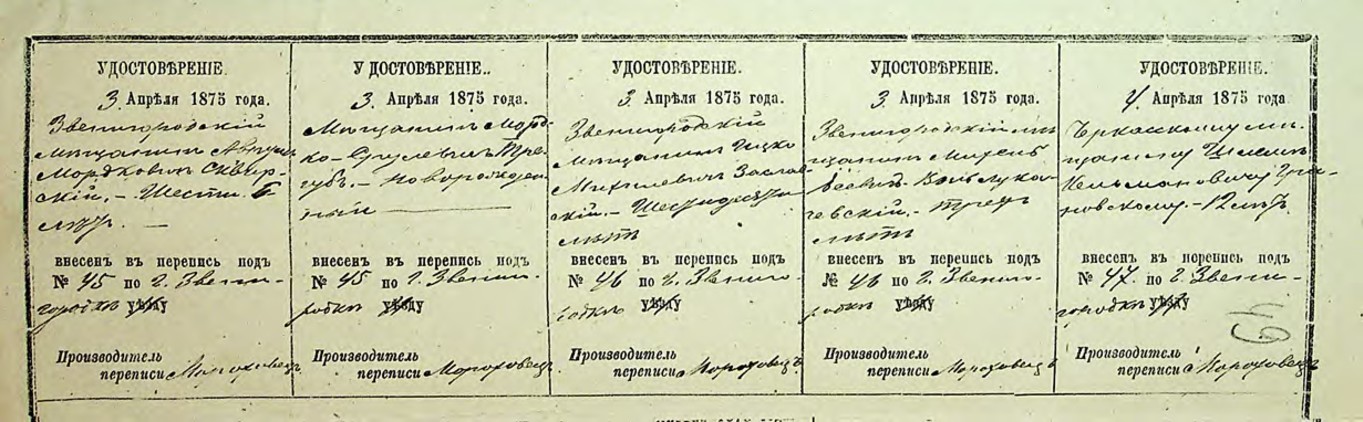 УДОСТОВѢРЕНІЕ.
3. Апрѣля 1875 года.
Звенигородскій
мѣщанинъ
Мордковичъ Сквир-
скій, – Шести
лѣтъ. —
внесенъ въ перепись подъ
№ 45 по г. Звени-
городкѣ уѣзду
Производитель
переписи Мороховецъ
У ДОСТОВѢРЕНІЕ..
3. Апрѣля 1875 года.
Мѣщанинъ Морд-
ко – Сруілевичъ Тре-
губъ. – Новорожден-
ный —
внесенъ въ перепись подъ
№ 45 по г. Звени-
родкѣ уѣзду
Производитель
переписи Мороховецъ
УДОСТОВѢРЕНІЕ.
3. Апрѣля 1875 года.
Звенигородскій
мѣщанинъ Ицко
Заслав-
скій. – Шестидесяти
лѣтъ
внесенъ въ перепись подъ
№ 46 по г. Звениго-
родкѣ уѣзду
Производитель
переписи Мороховецъ
УДОСТОВѢРЕНІЕ.
3. Апрѣля 1875 года.
Звенигородскій мѣ-
щанинъ
– трехъ
лѣтъ
внесенъ въ перепись подъ
№ 46 по г. Звениго-
родкѣ уѣзду
Производитель
переписи Мороховецъ
УДОСТОВѢРЕНІЕ.
4. Апрѣля 1875 года
Черкасскому мѣ-
щанину
Кельмановичу
новскому. – 12 лѣтъ.
внесенъ въ перепись подъ
№ 47. по г. Звени-
городкѣ уѣзду
Производитель
переписи Мороховецъ
49